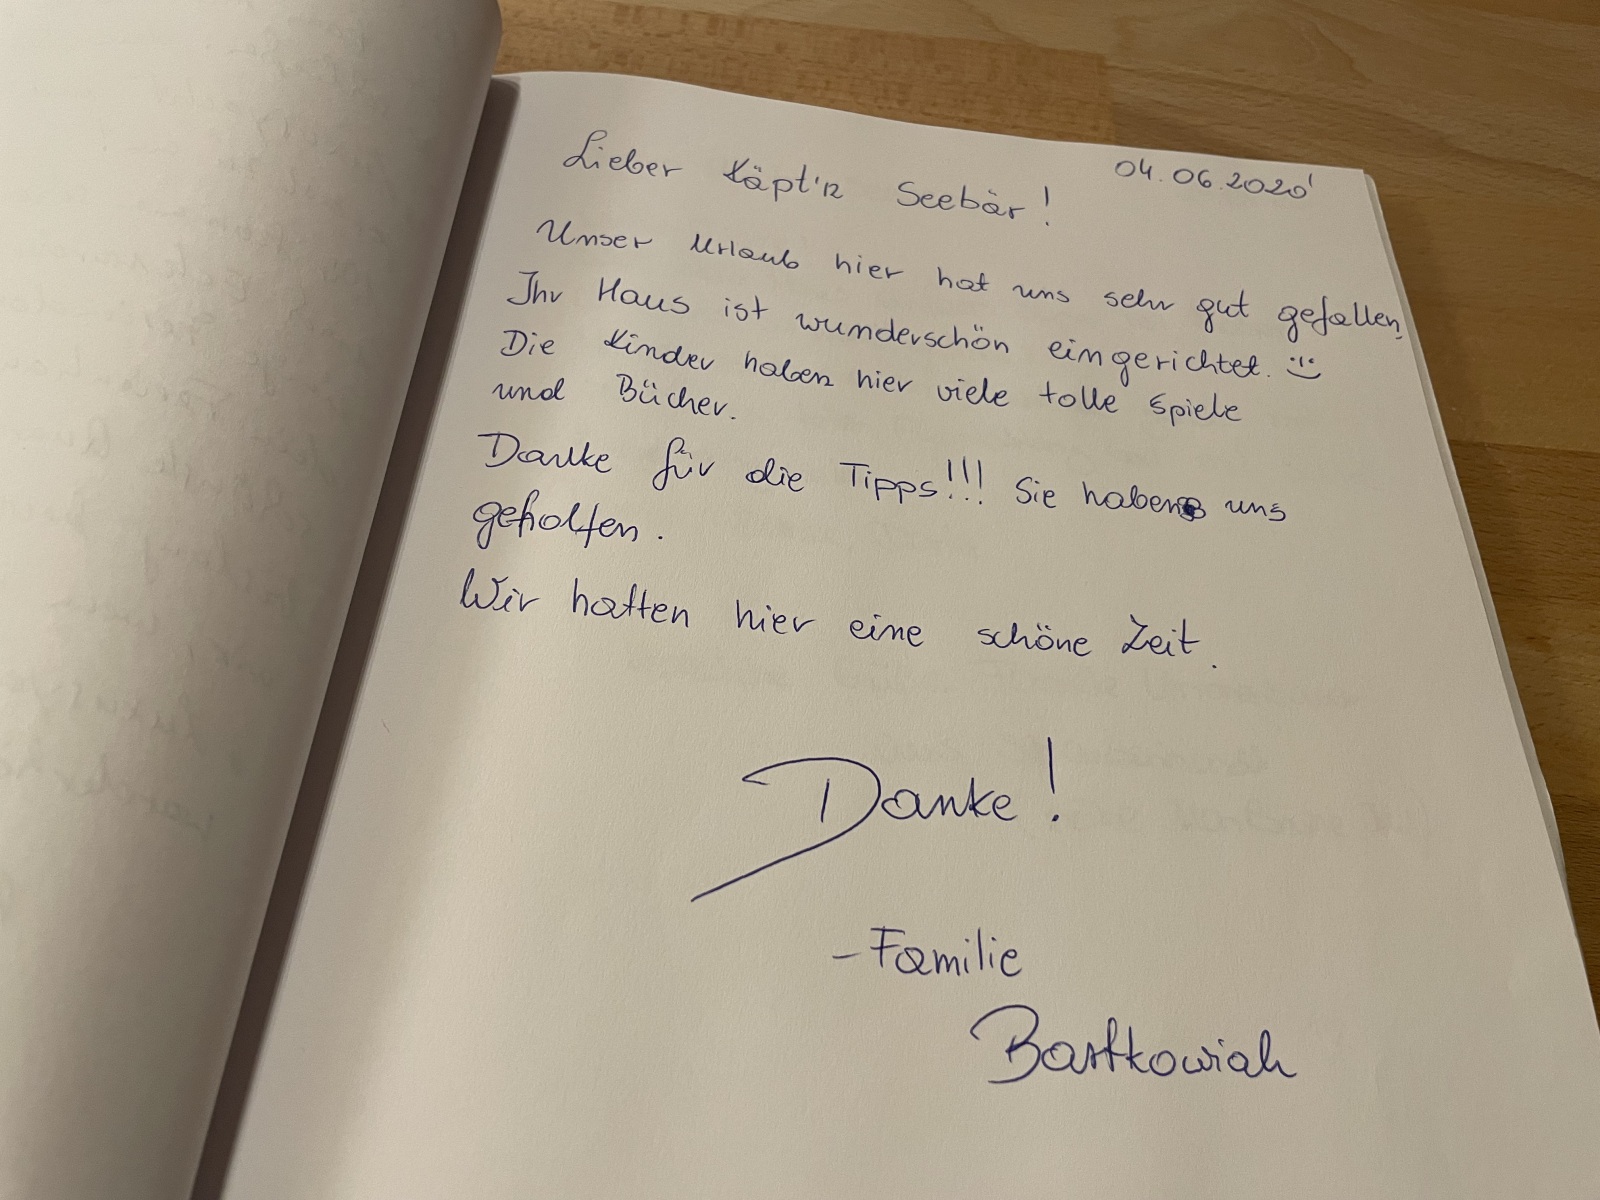 04.06.2020
Lieber Käpt'n Seebär!
Unser Urlaub hier hat uns sehr gut gefallen.
Ihr Haus ist wunderschön eingerichtet. :)
Die Kinder haben hier viele tolle Spiele
und Bücher.
Danke für die Tipps!!! Sie haben uns
geholfen.
Wir hatten hier eine schöne Zeit.
Danke!
- Familie
Bartkowiak